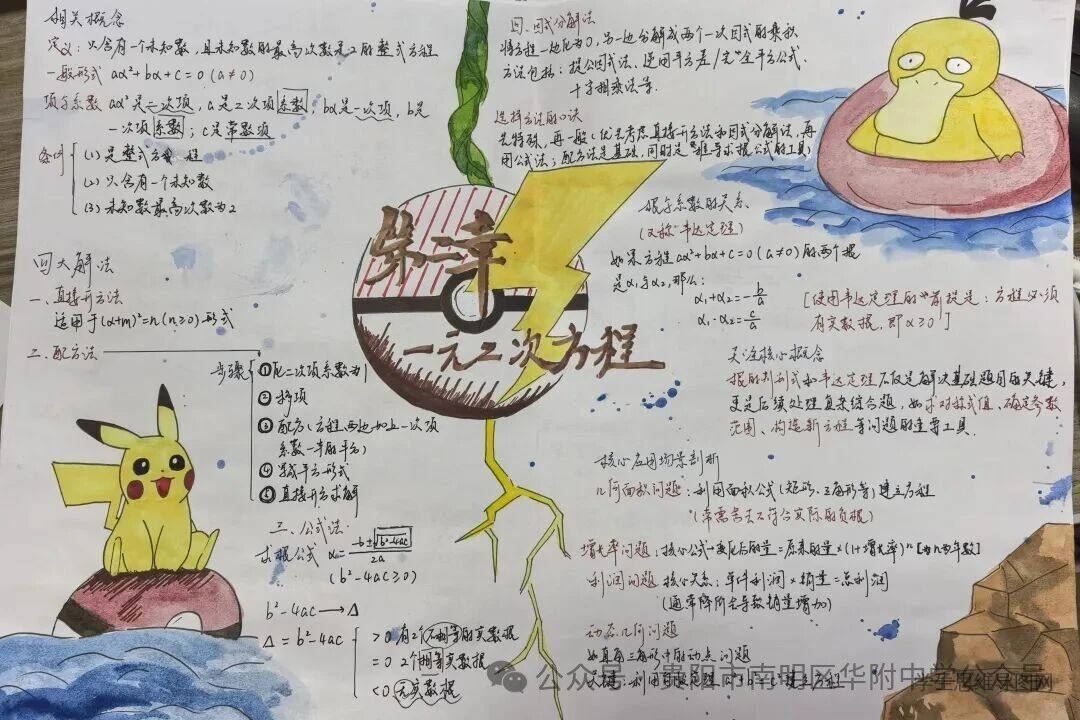 相关概念
定义：只含有一个未知数，且未知数的最高次数是2的整式方程
一般形式 ax²+bx+c=0(a≠0)
项与系数 ax²是二次项，a是二次项系数；bx是一次项，b是
一次项系数；c是常数项
条件
(1)是整式方程
(2)只含有一个未知数
(3)未知数最高次数为2
四大解法
一、直接开方法
适用于(x+m)²=n(n≥0)形式
二、配方法
步骤
①化二次项系数为1
②移项
③配方(方程两边加上一次项
系数一半的平方)
④写成平方形式
⑤直接开方求解
三、公式法
求根公式 x=-b±√b²-4ac/2a
(b²-4ac≥0)
b²-4ac→Δ
Δ=b²-4ac
>0 有2个不相等的实数根
=0 2个相等实数根
<0 无实数根
第二章
一元二次方程
四、因式分解法
将方程一边化为0，另一边分解成两个一次因式的乘积
方法包括：提公因式法、逆用平方差/完全平方公式、
十字相乘法等.
选择方法的口诀
先特殊，再一般(优先考虑直接开方法和因式分解法，再
用公式法；配方法是基础，同时是推导求根公式的工具)
根与系数的关系
(又称"韦达定理")
如果方程ax²+bx+c=0(a≠0)的两个根
是x₁与x₂，那么：
x₁+x₂=-b/a
x₁·x₂=c/a
[使用韦达定理的前提是：方程必须
有实数根，即Δ≥0]
关注核心概念
根的判别式和韦达定理不仅是解决基础题目的关键，
更是后续处理复杂综合题，如求对称式值、确定参数
范围、构造新方程等问题的重要工具.
核心应用场景剖析
几何面积问题：利用面积公式(矩形、三角形等)建立方程
(常需舍去不符合实际的负根)
增长率问题：核心公式→变化后的量=原来的量×(1+增长率)ⁿ[n为年数]
利润问题 核心关系：单件利润×销量=总利润
(通常降价会导致销量增加)
动态几何问题
如直角三角形中的动点问题
关键：利用勾股定理 建立方程
公众号·贵阳市南明区华附中学公众号